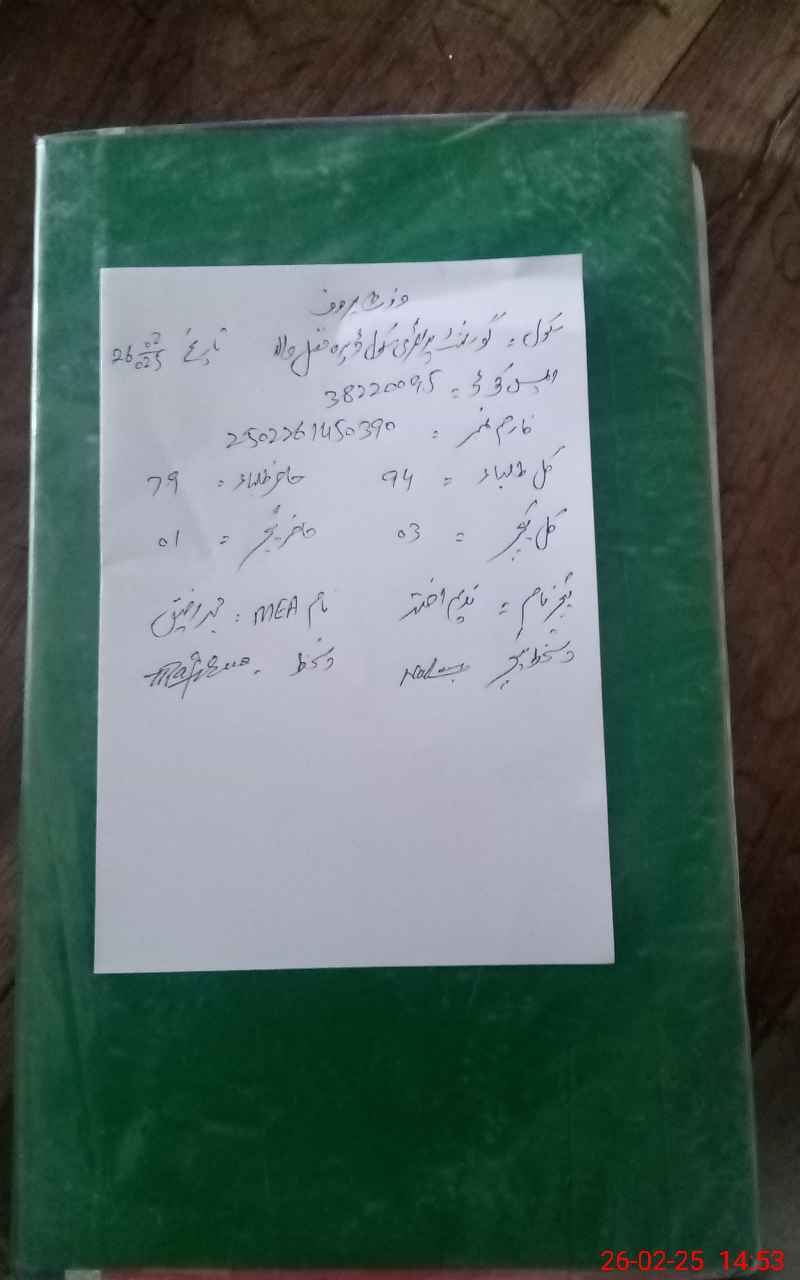 وزٹ پروف
سکول = گورنمنٹ پرائمری سکول ڈیرہ فضل والا تاریخ 26/02/025
ایمس کوڈ = 38220095
فارم نمبر = 2502261450390
کل طلباء = 94 حاضر طلباء = 79
کل ٹیچر = 03 حاضر ٹیچر = 01
ٹیچر نام = ندیم اختر نام MEA =
دستخط ٹیچر دستخط =
26-02-25 14:53